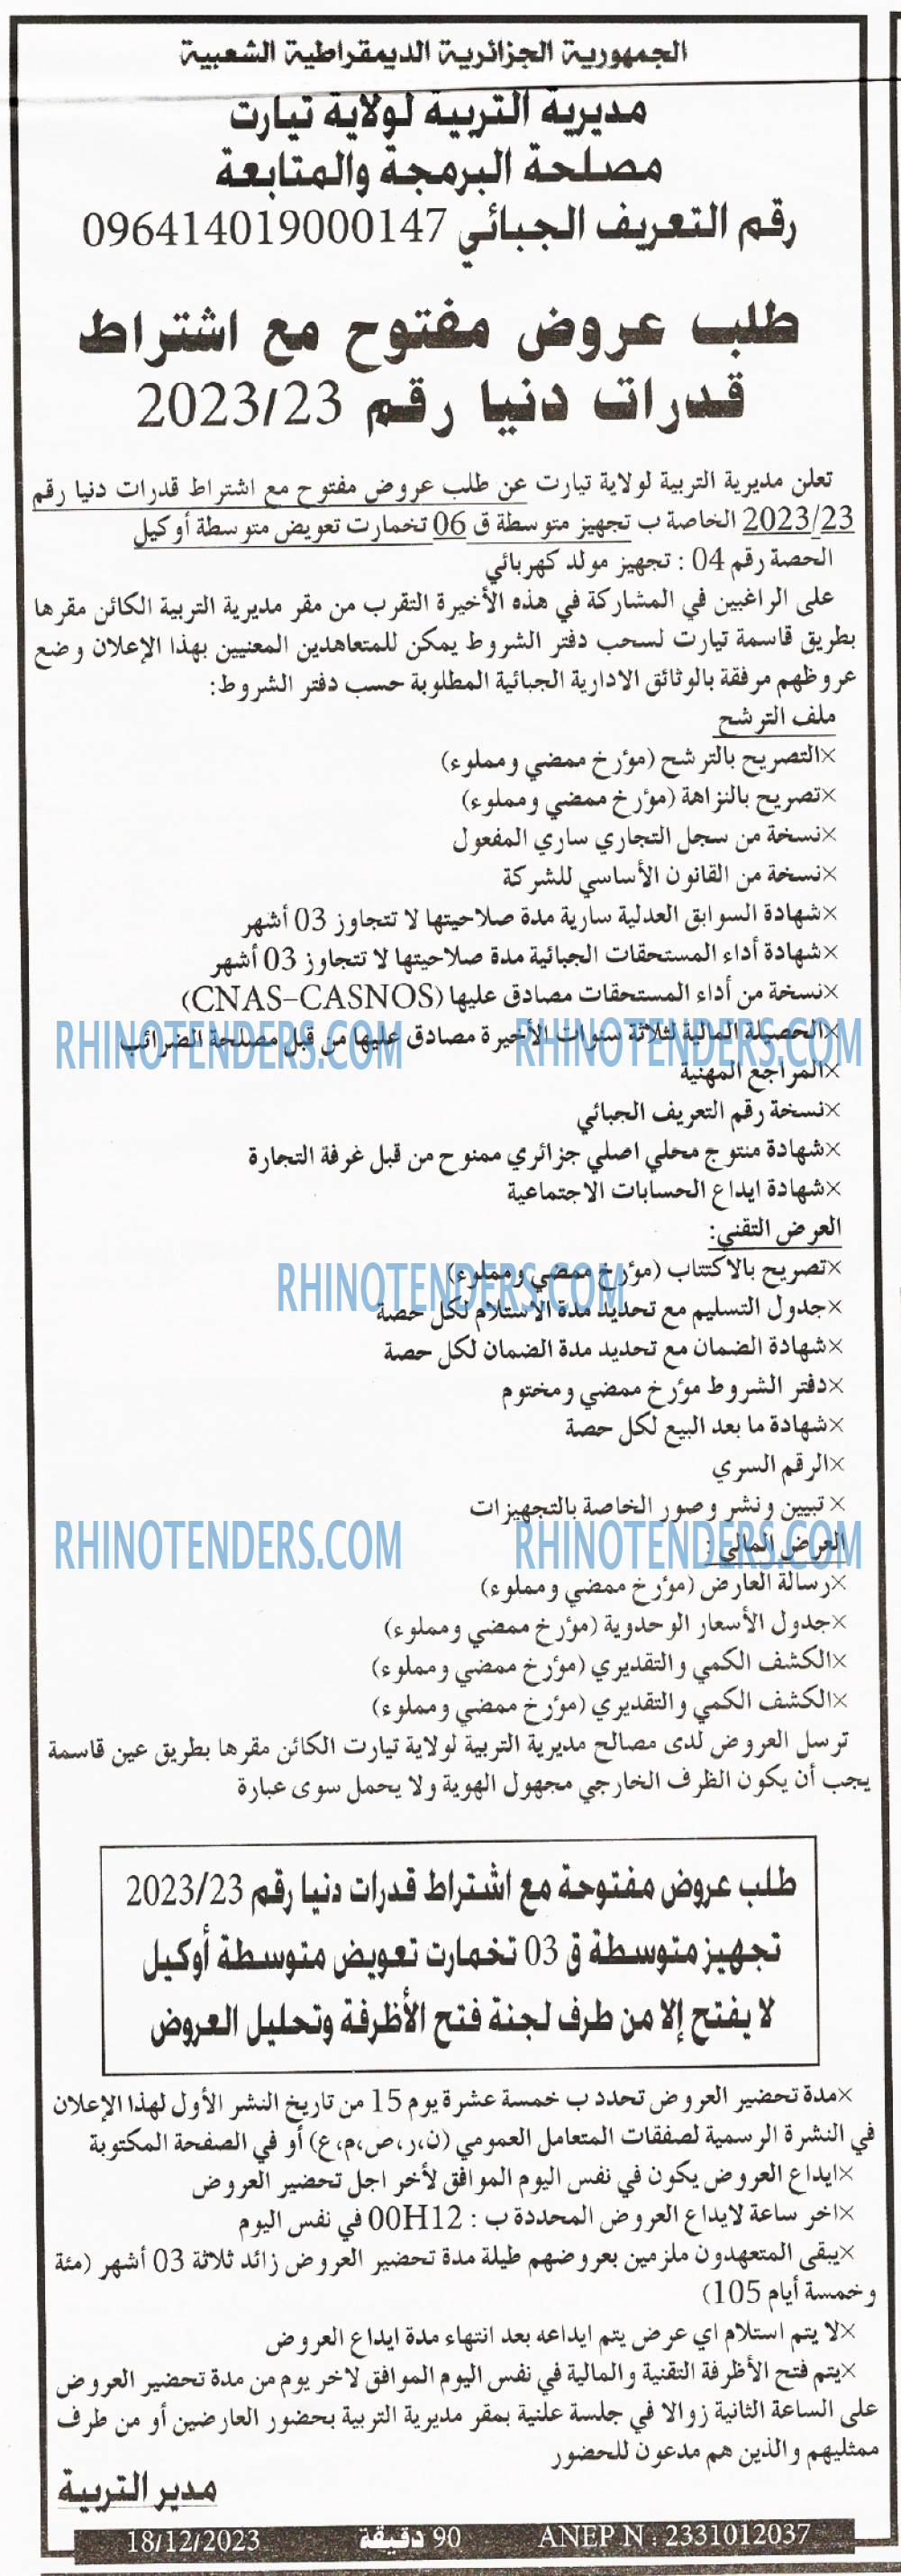 الجمهورية الجزائرية الديمقراطية الشعبية
مديرية التربية لولاية تيارت
مصلحة البرمجة والمتابعة
رقم التعريف الجبائي 096414019000147
طلب عروض مفتوح مع اشتراط
قدرات دنيا رقم 2023/23
تعلن مديرية التربية لولاية تيارت عن طلب عروض مفتوح مع اشتراط قدرات دنيا رقم
2023/23 الخاصة ب تجهيز متوسطة ق 06 تخمارت تعويض متوسطة أوكيل
الحصة رقم 04 : تجهيز مولد كهربائي
على الراغبين في المشاركة في هذه الأخيرة التقرب من مقر مديرية التربية الكائن مقرها
بطريق قاسمة تيارت لسحب دفتر الشروط يمكن للمتعاهدين المعنيين بهذا الإعلان وضع
عروظهم مرفقة بالوثائق الادارية الجبائية المطلوبة حسب دفتر الشروط:
ملف الترشح
×التصريح بالترشح (مؤرخ ممضي ومملوء)
×تصريح بالنزاهة (مؤرخ ممضي ومملوء)
×نسخة من سجل التجاري ساري المفعول
×نسخة من القانون الأساسي للشركة
×شهادة السوابق العدلية سارية مدة صلاحيتها لا تتجاوز 03 أشهر
×شهادة أداء المستحقات الجبائية مدة صلاحيتها لا تتجاوز 03 أشهر
×نسخة من أداء المستحقات مصادق عليها (CNAS-CASNOS)
×الحصيلة المالية لثلاثة سنوات الأخيرة مصادق عليها من قبل مصلحة الضرائب
RHINOTENDERS.COM RHINOTENDERS.COM
×المراجع المهنية
×نسخة رقم التعريف الجبائي
×شهادة منتوج محلي اصلي جزائري ممنوح من قبل غرفة التجارة
×شهادة ايداع الحسابات الاجتماعية
العرض التقني:
×تصريح بالاكتتاب (مؤرخ ممضي ومملوء)
RHINOTENDERS.COM
×جدول التسليم مع تحديد مدة الاستلام لكل حصة
×شهادة الضمان مع تحديد مدة الضمان لكل حصة
×دفتر الشروط مؤرخ ممضي ومختوم
×شهادة ما بعد البيع لكل حصة
×الرقم السري
× تبيين ونشر وصور الخاصة بالتجهيزات
العرض المالي:
RHINOTENDERS.COM RHINOTENDERS.COM
×رسالة العارض (مؤرخ ممضي ومملوء)
×جدول الأسعار الوحدوية (مؤرخ ممضي ومملوء)
×الكشف الكمي والتقديري (مؤرخ ممضي ومملوء)
×الكشف الكمي والتقديري (مؤرخ ممضي ومملوء)
ترسل العروض لدى مصالح مديرية التربية لولاية تيارت الكائن مقرها بطريق عين قاسمة
يجب أن يكون الظرف الخارجي مجهول الهوية ولا يحمل سوى عبارة
طلب عروض مفتوحة مع اشتراط قدرات دنيا رقم 2023/23
تجهيز متوسطة ق 03 تخمارت تعويض متوسطة أوكيل
لا يفتح إلا من طرف لجنة فتح الأظرفة وتحليل العروض
×مدة تحضير العروض تحدد ب خمسة عشرة يوم 15 من تاريخ النشر الأول لهذا الإعلان
في النشرة الرسمية لصفقات المتعامل العمومي (ن،ر،ص،م،ع) أو في الصفحة المكتوبة
×ايداع العروض يكون في نفس اليوم الموافق لأخر اجل تحضير العروض
×اخر ساعة لايداع العروض المحددة ب : 00H12 في نفس اليوم
×يبقى المتعهدون ملزمين بعروضهم طيلة مدة تحضير العروض زائد ثلاثة 03 أشهر (مئة
وخمسة أيام 105)
×لا يتم استلام اي عرض يتم ايداعه بعد انتهاء مدة ايداع العروض
×يتم فتح الأظرفة التقنية والمالية في نفس اليوم الموافق لاخر يوم من مدة تحضير العروض
على الساعة الثانية زوالا في جلسة علنية بمقر مديرية التربية بحضور العارضين أو من طرف
ممثليهم والذين هم مدعون للحضور
مدير التربية
18/12/2023 90 دقيقة ANEP N : 2331012037